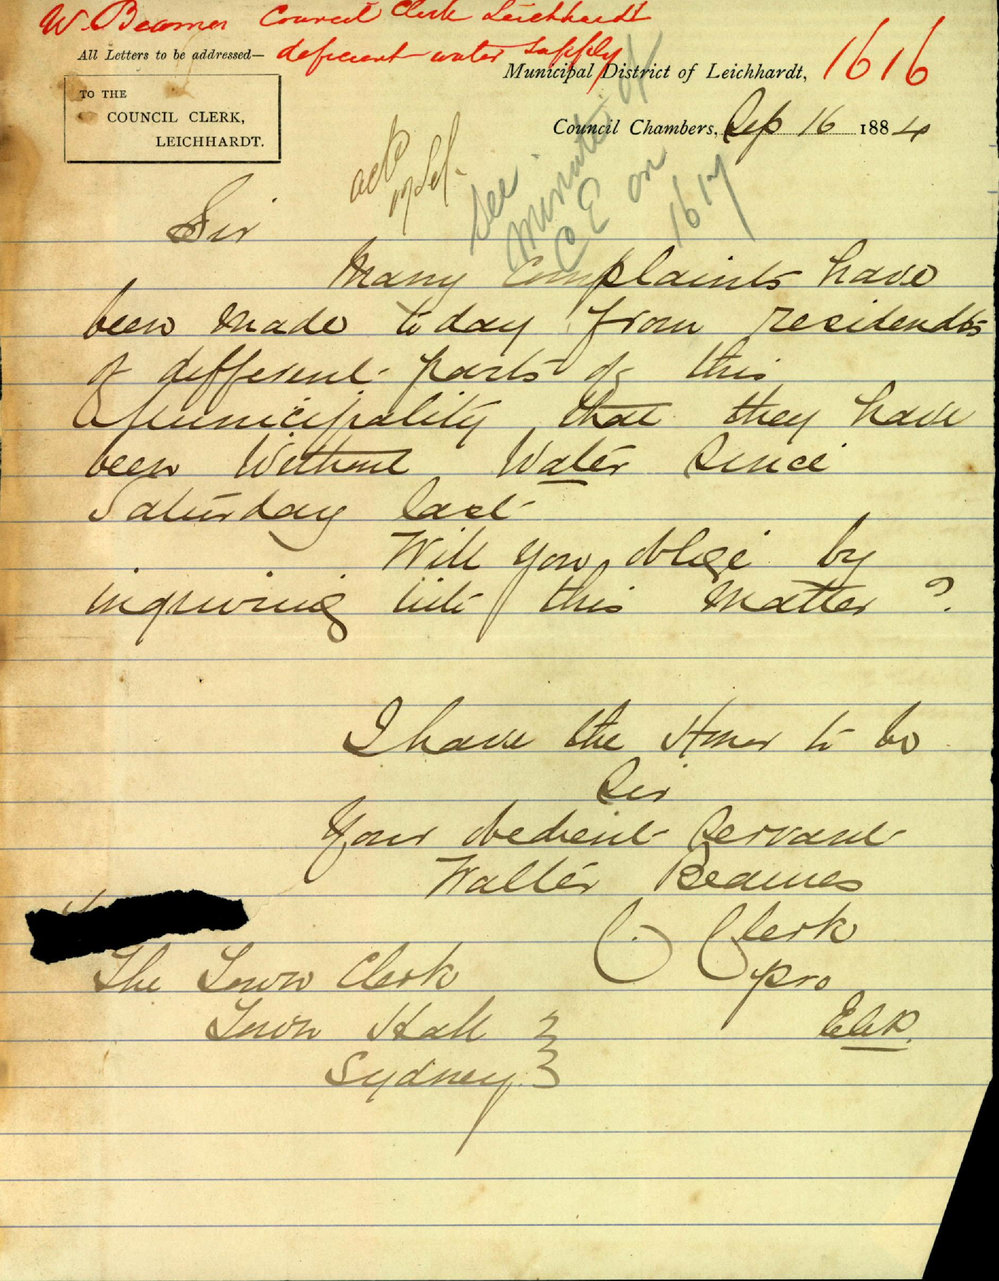 W. Beames Council Clerk Leichhardt
deficient water supply
All Letters to be addressed—
TO THE
COUNCIL CLERK,
LEICHHARDT.
Municipal District of Leichhardt,
1616
Council Chambers, Sep 16 1884
See
minute of
C E on
1617
Sir
Many Complaints have
been made today from residents
of different parts of this
Municipality that they have
been Without Water Since
Saturday last
Will you oblige by
inquiring into this Matter ?
I have the Honor to be
Sir
Your obedient Servant
Walter Beames
C. Clerk
pro
The Town Clerk
Town Hall
Sydney